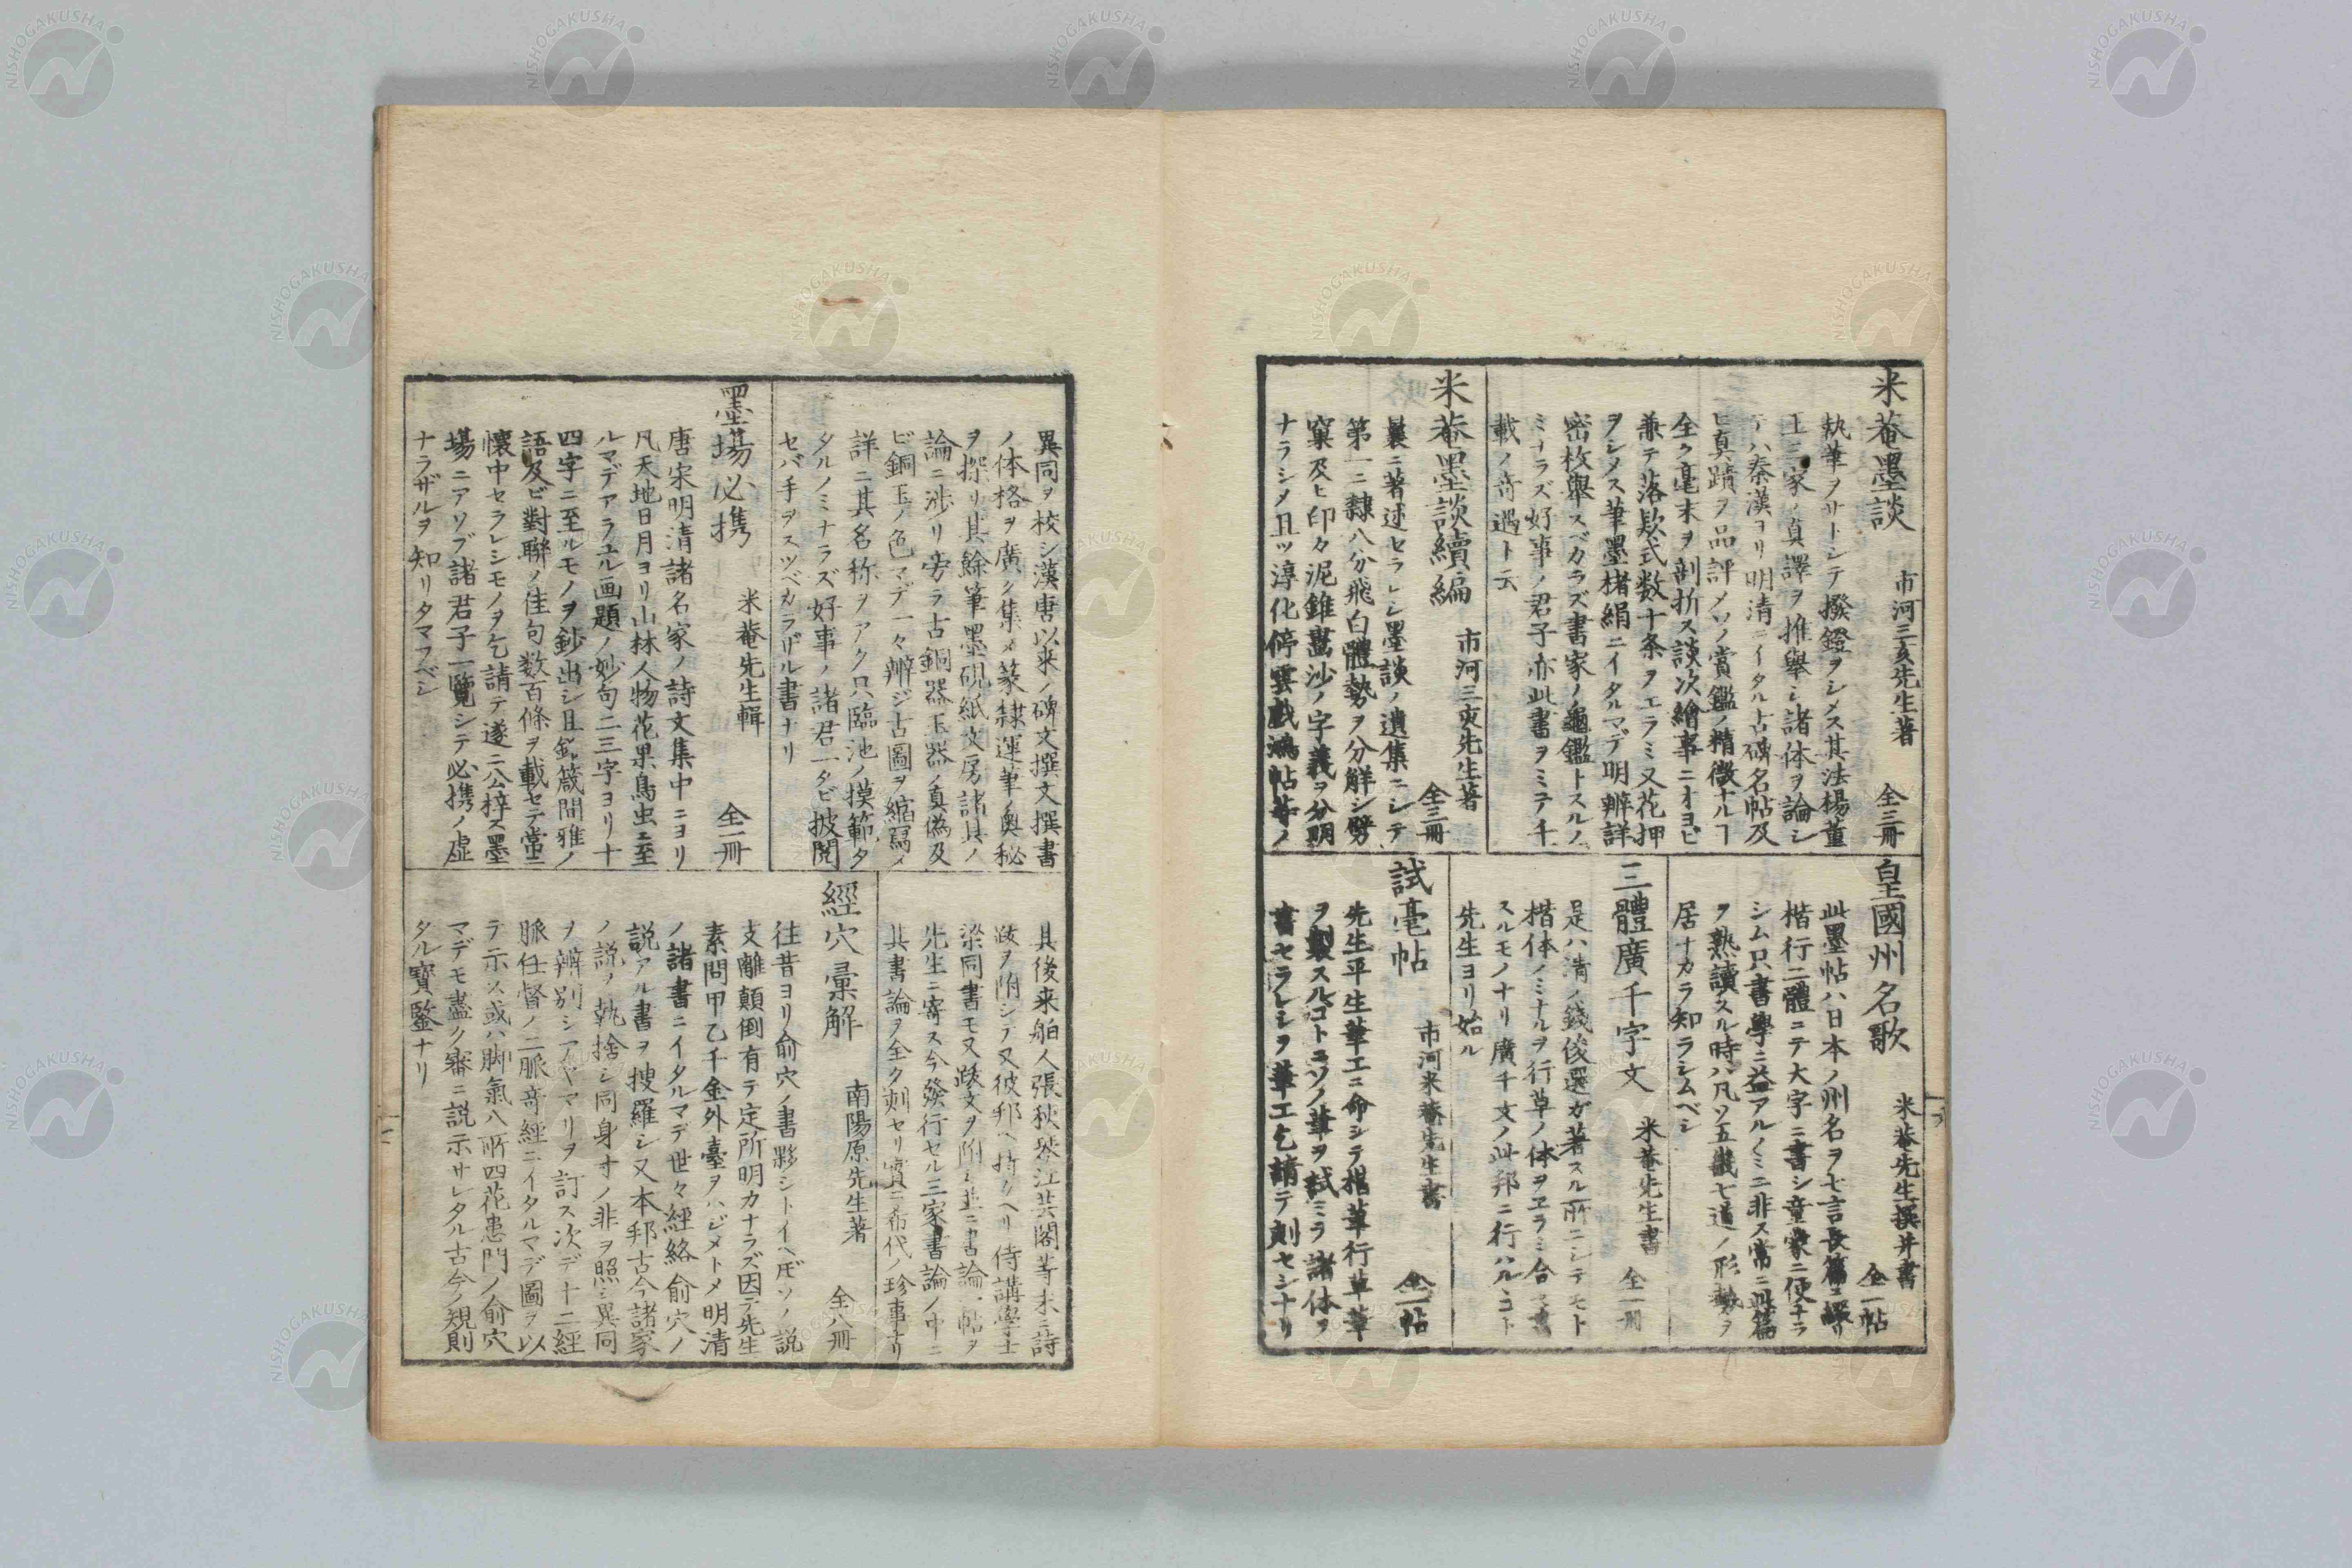 米菴墨談
市河三亥先生著
全三冊
執筆ヲサトシテ撥鐙ヲシメス其法楊董
王三家ノ真譯ヲ推舉シ諸体ヲ論シ
テハ秦漢ヨリ明清ニイタル古碑名帖及
ヒ真蹟ヲ品評メソノ賞鑑ノ精徴ナルヿ
全ク毫末ヲ剖折ス談次繪事ニオヨビ
兼テ落欵式数十条ヲエラミ又花押
ヲシメス筆墨楮絹ニイタルマデ明辨詳
密枚舉スベカラズ書家ノ龜鑑トスルノ
ミナラズ好事ノ君子亦此書ヲミテ千
載ノ奇遇ト云
米菴墨談續編
市河三亥先生著
全三冊
曩ニ著述セラレシ墨談ノ遺集ニシテ
第一ニ隸八分飛白體勢ヲ分解シ劈
窠及ヒ印々泥錐畫沙ノ字義ヲ分明
ナラシメ且ツ淳化停雲戯鴻帖等ノ
皇國州名歌
米菴先生撰并書
全一帖
此墨帖ハ日本ノ州名ヲ七言長篇ニ綴リ
楷行二體ニテ大字ニ書シ童蒙ニ便ナラ
シム只書學ニ益アルノミニ非ス常ニ此篇
ヲ熟讀スル時ハ凡ソ五畿七道ノ形勢ヲ
居ナカラ知ラシムベシ
三體廣千字文
米菴先生書
全一冊
是ハ清ノ錢俊選ガ著スル所ニシテモト
楷体ノミナルヲ行草ノ体ヲヱラミ合書
スルモノナリ廣千文ノ此邦ニ行ハルヽコト
先生ヨリ始ル
試毫帖
市河米菴先生書
全一帖
先生平生筆工ニ命シテ楷筆行草筆
ヲ製スルコトニソノ筆ヲ試ミテ諸体ヲ
書セラレシヲ筆工乞請テ刻セシナリ
異同ヲ校シ漢唐以来ノ碑文撰文撰書
ノ体格ヲ廣ク集メ篆隸運筆ノ奥秘
ヲ探リ其餘筆墨硯紙文房諸具ノ
論ニ渉リ旁ラ古銅器玉器ノ真偽及
ビ銅玉ノ色マデ一々辨ジ古圖ヲ縮冩メ
詳ニ其名称ヲアク只臨池ノ摸範タ
タルノミナラズ好事ノ諸君一タビ披閲
セバ手ヲスツベカラザル書ナリ
墨場必携
米菴先生輯
全一冊
唐宋明清諸名家ノ詩文集中ニヨリ
凡天地日月ヨリ山林人物花果鳥虫ニ至
ルマデアラユル画題ノ妙句二三字ヨリ十
四字ニ至ルモノヲ鈔出シ且銘箴間雅ノ
語及ビ對聯ノ佳句数百條ヲ載セテ常ニ
懐中セラレシモノヲ乞請テ遂ニ公梓ス墨
場ニアソブ諸君子一覽シテ必携ノ虚
ナラザルヲ知リタマフベシ
其後来舶人張秋琴江芸閣等末ニ詩
跋ヲ附シテ又彼邦ヘ持タヘリ侍講學士
梁同書モ又跋文ヲ附シ並ニ書論一帖ヲ
先生ニ寄ス今發行セル三家書論ノ中ニ
其書論ヲ全ク刻セリ實ニ希代ノ珍事ナリ
經穴彙解
南陽原先生著
全八冊
往昔ヨリ俞穴ノ書夥シトイヘ𪜈ソノ説
支離顛倒有テ定所明カナラズ因テ先生
素問甲乙千金外臺ヲハジメトメ明清
ノ諸書ニイタルマデ世々經絡俞穴ノ
説アル書ヲ搜羅シ又本邦古今諸家
ノ説ヲ執捨シ同身寸ノ非ヲ照シ異同
ヲ辨別シアヤマリヲ訂ス次デ十二經
脈任督ノ二脈奇經ニイタルマデ圖ヲ以
テ示ス或ハ脚氣八所四花患門ノ俞穴
マデモ盡ク審ニ説示サレタル古今ノ規則
タル寳鑒ナリ